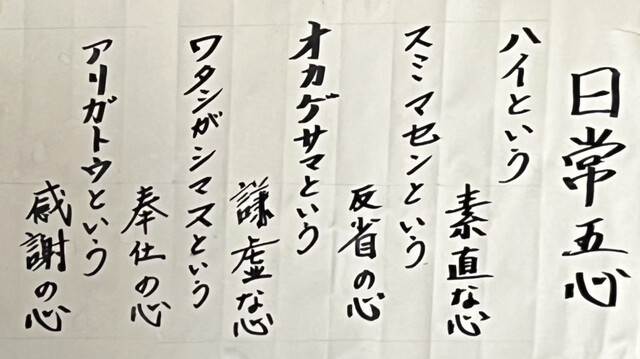 日常五心
ハイという
素直な心
スミマセンという
反省の心
オカゲサマという
謙虚な心
ワタシがシマスという
奉仕の心
アリガトウという
感謝の心